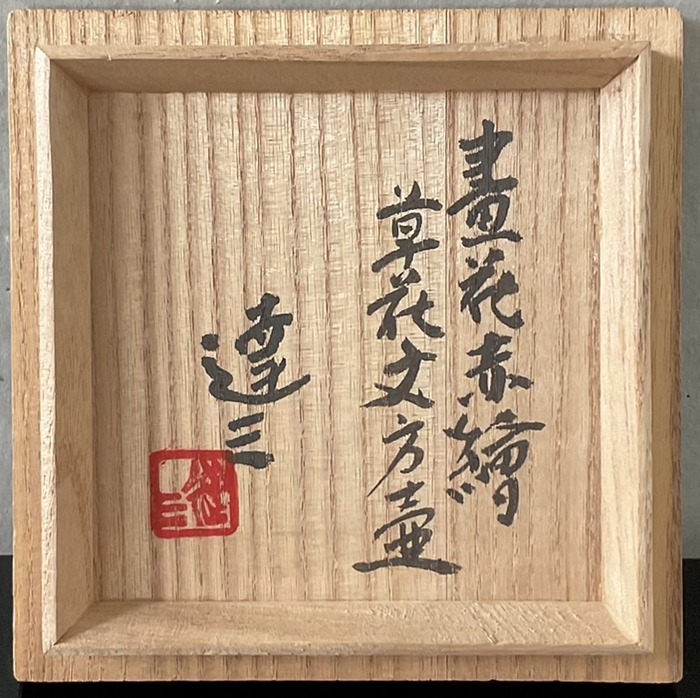 畫花赤繪
草花文方壺
達三